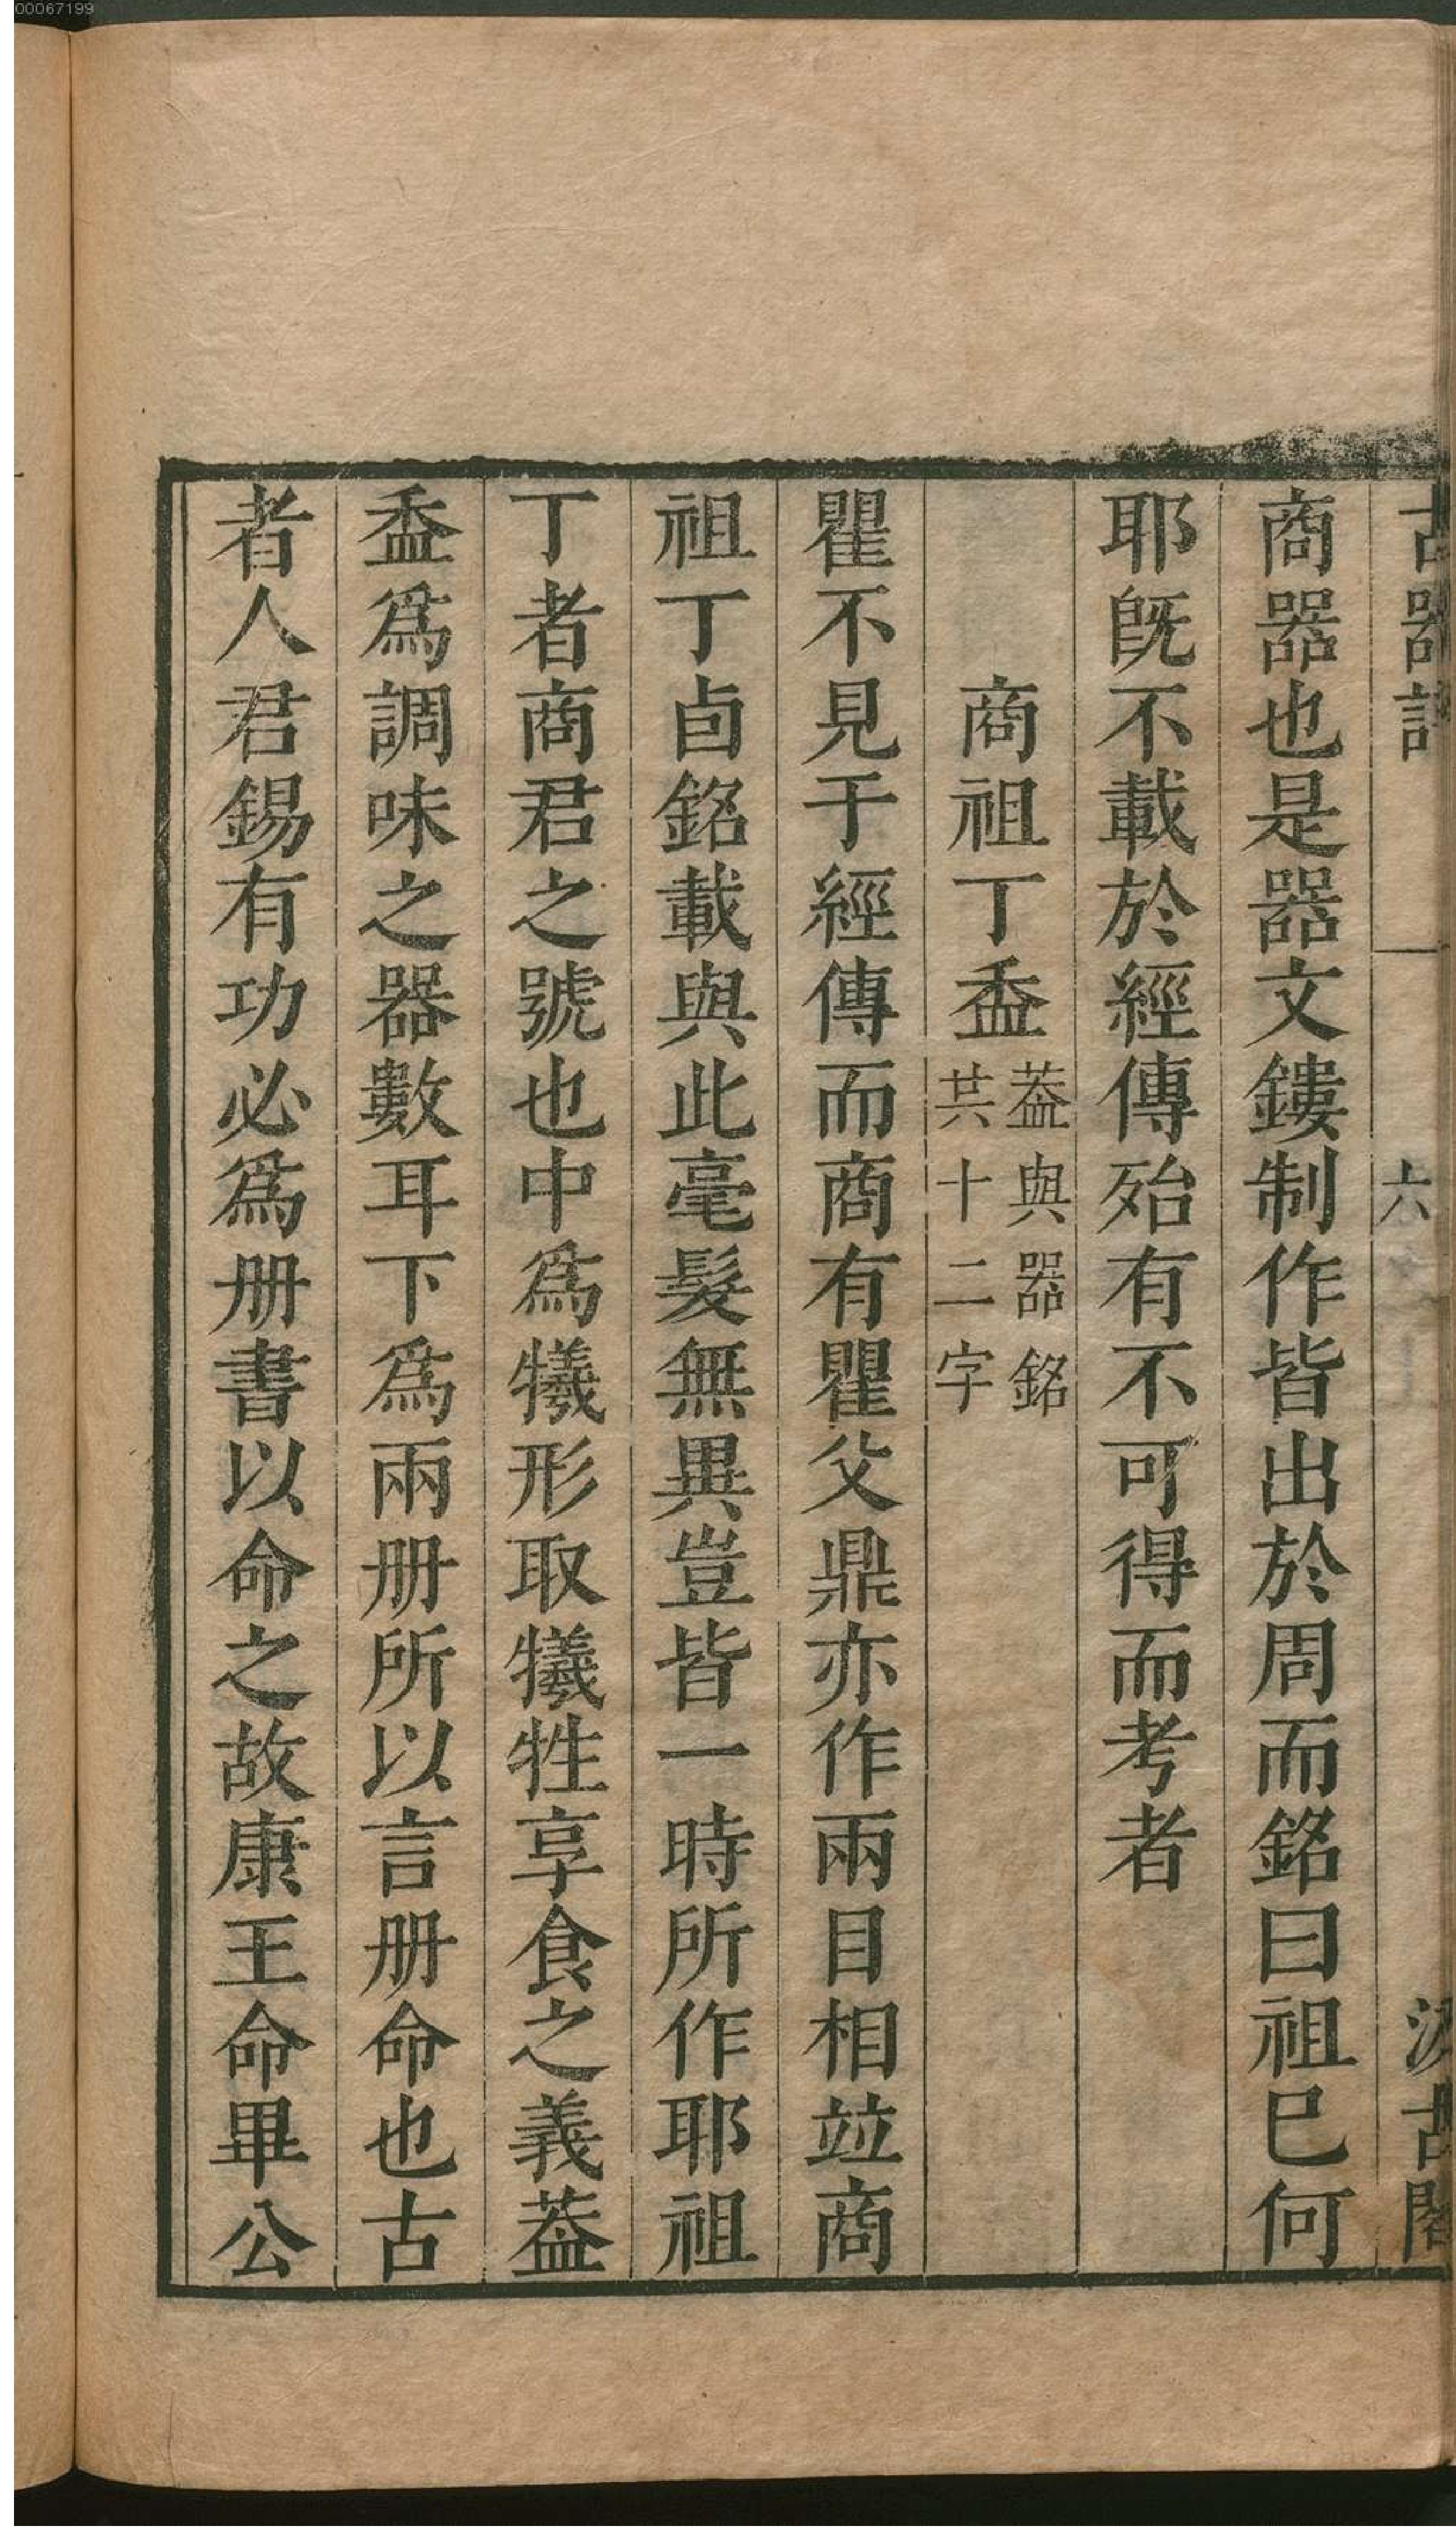 00067199
六
商器也是器文鏤制作皆出於周而銘曰祖巳何
耶旣不載於經傳殆有不可得而考者
商祖丁盉葢與器銘共十二字
瞿不見于經傳而商有瞿父鼎亦作兩目相竝商
祖丁卣銘載與此毫髮無異豈皆一時所作耶祖
丁者商君之號也中爲犧形取犧牲享食之義葢
盉爲調味之器數耳下爲兩册所以言册命也古
者人君錫有功必爲册書以命之故康王命畢公